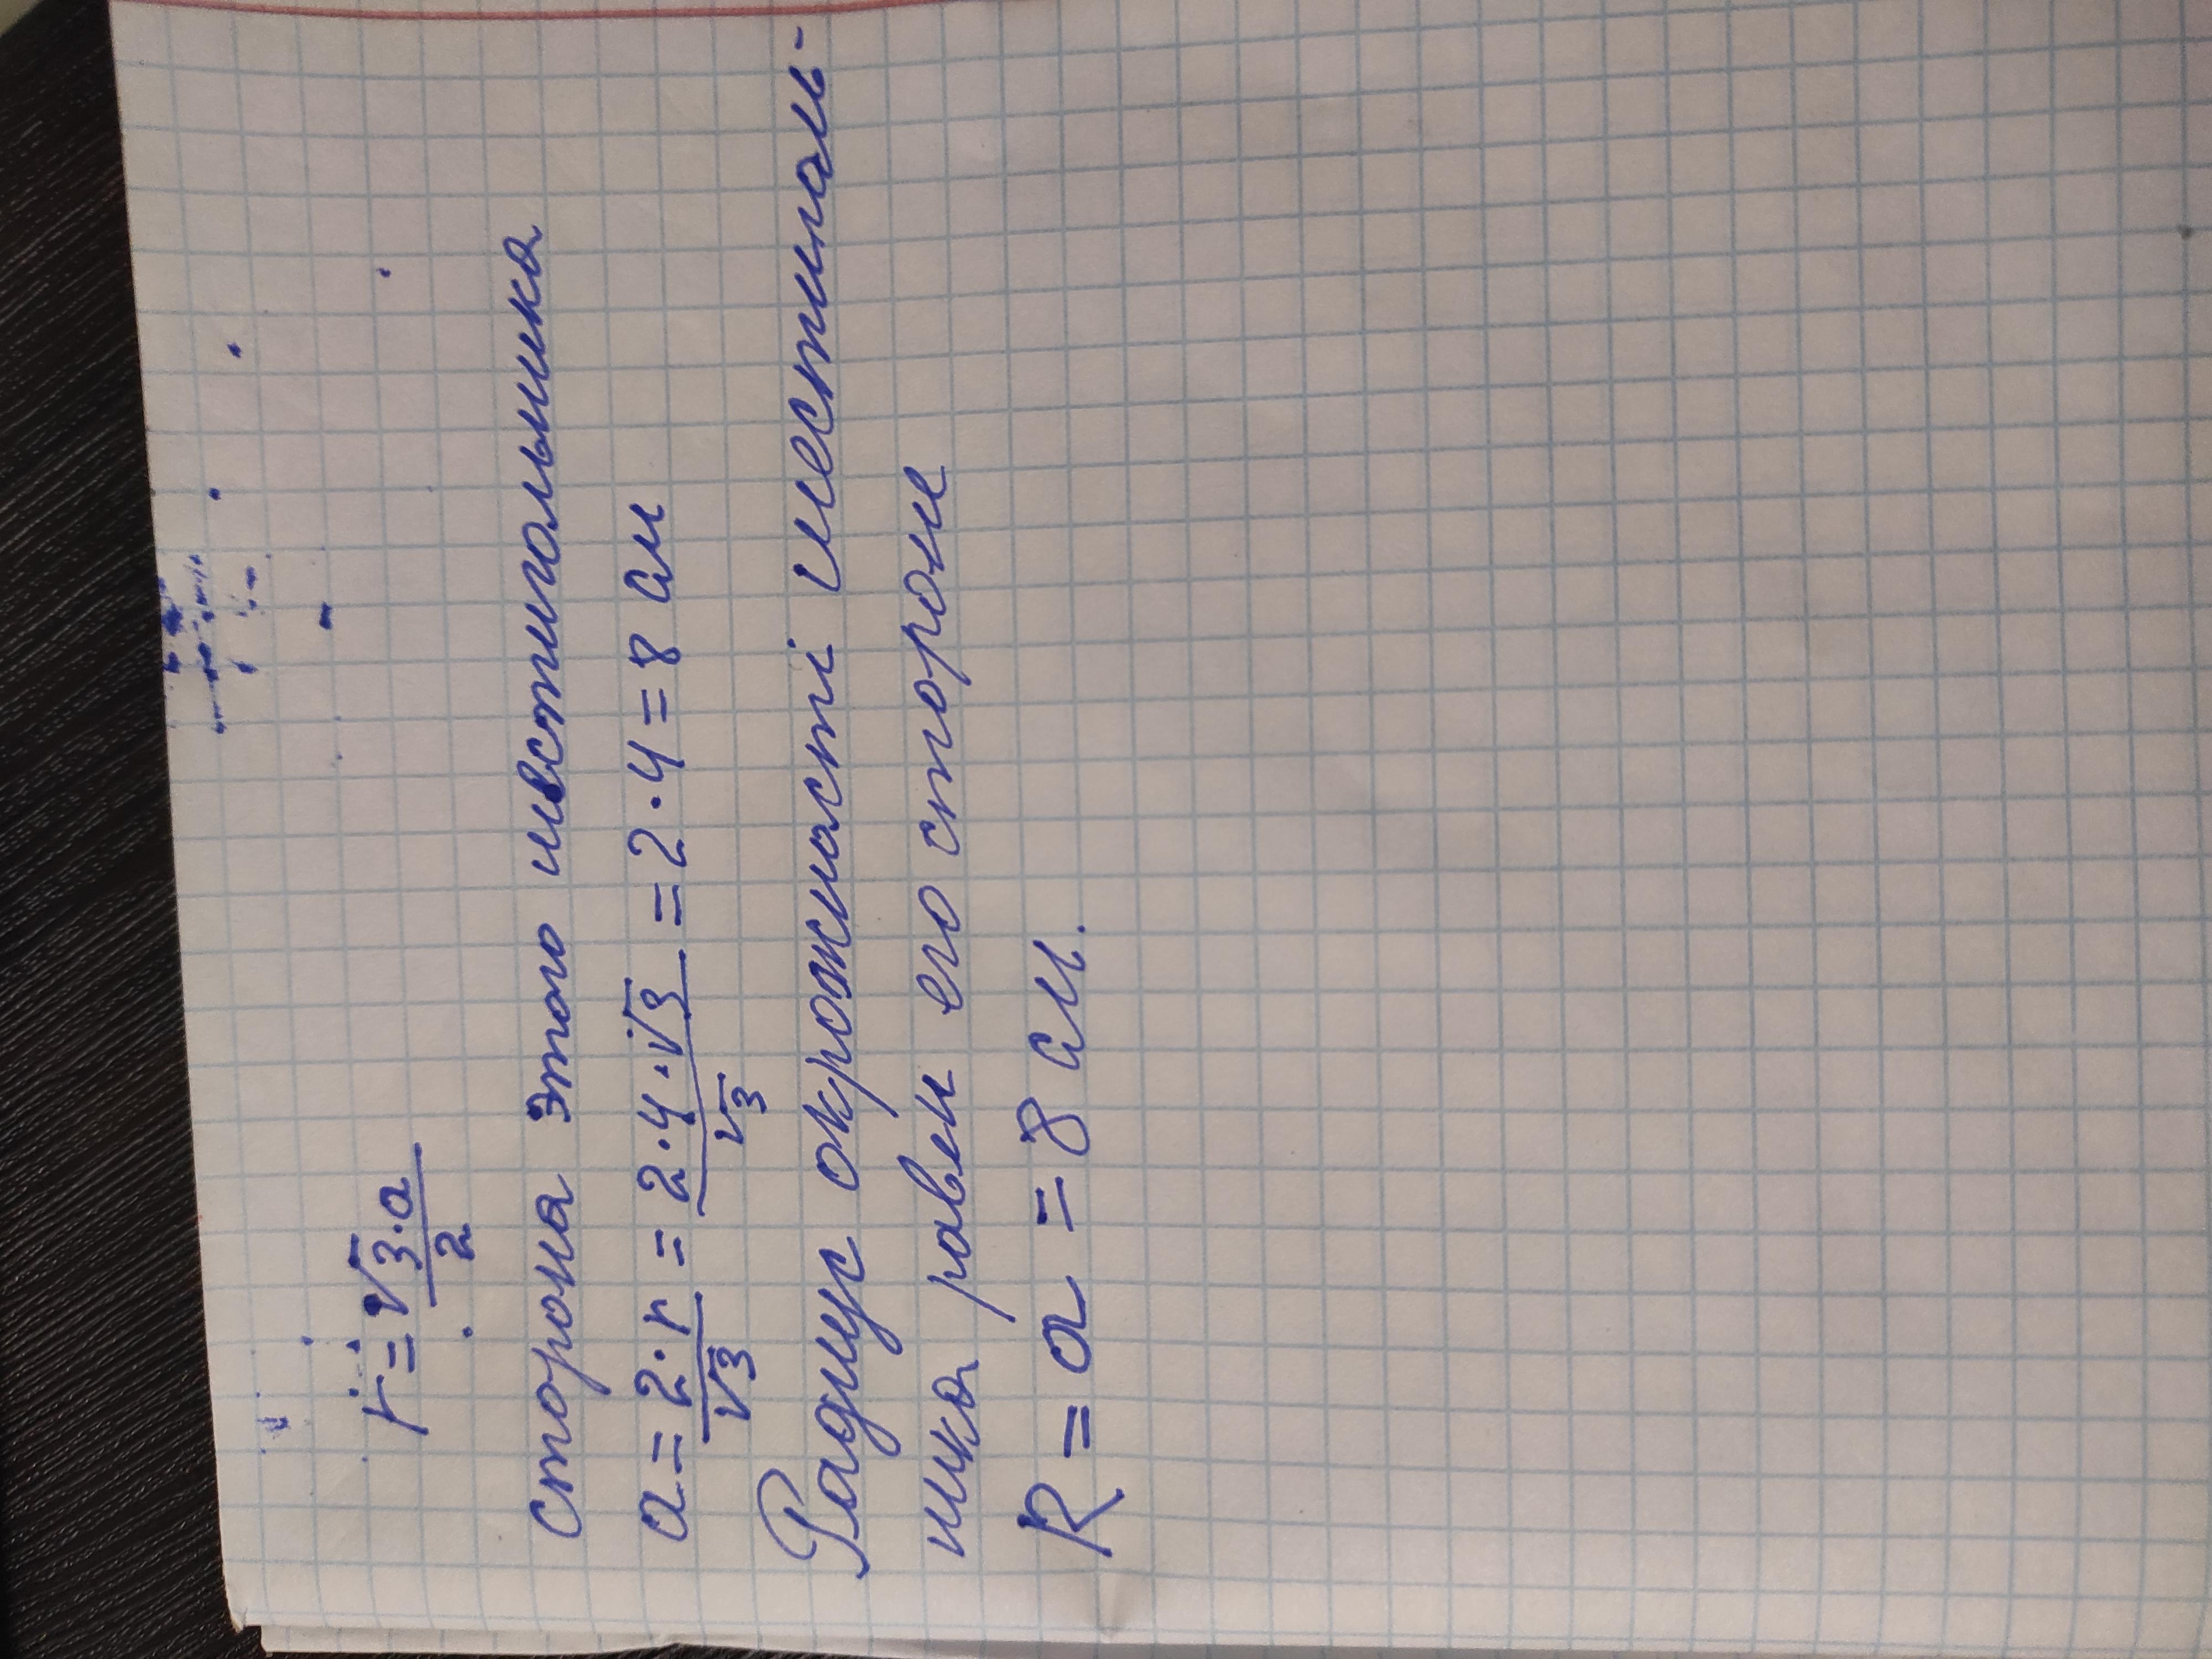 r = √3·a / 2
сторона этого шестигольника
a = 2·r / √3 = 2·4·√3 / √3 = 2·4 = 8 см
Радиус окружности шестиголь-
ника равен его стороне
R = a = 8 см.